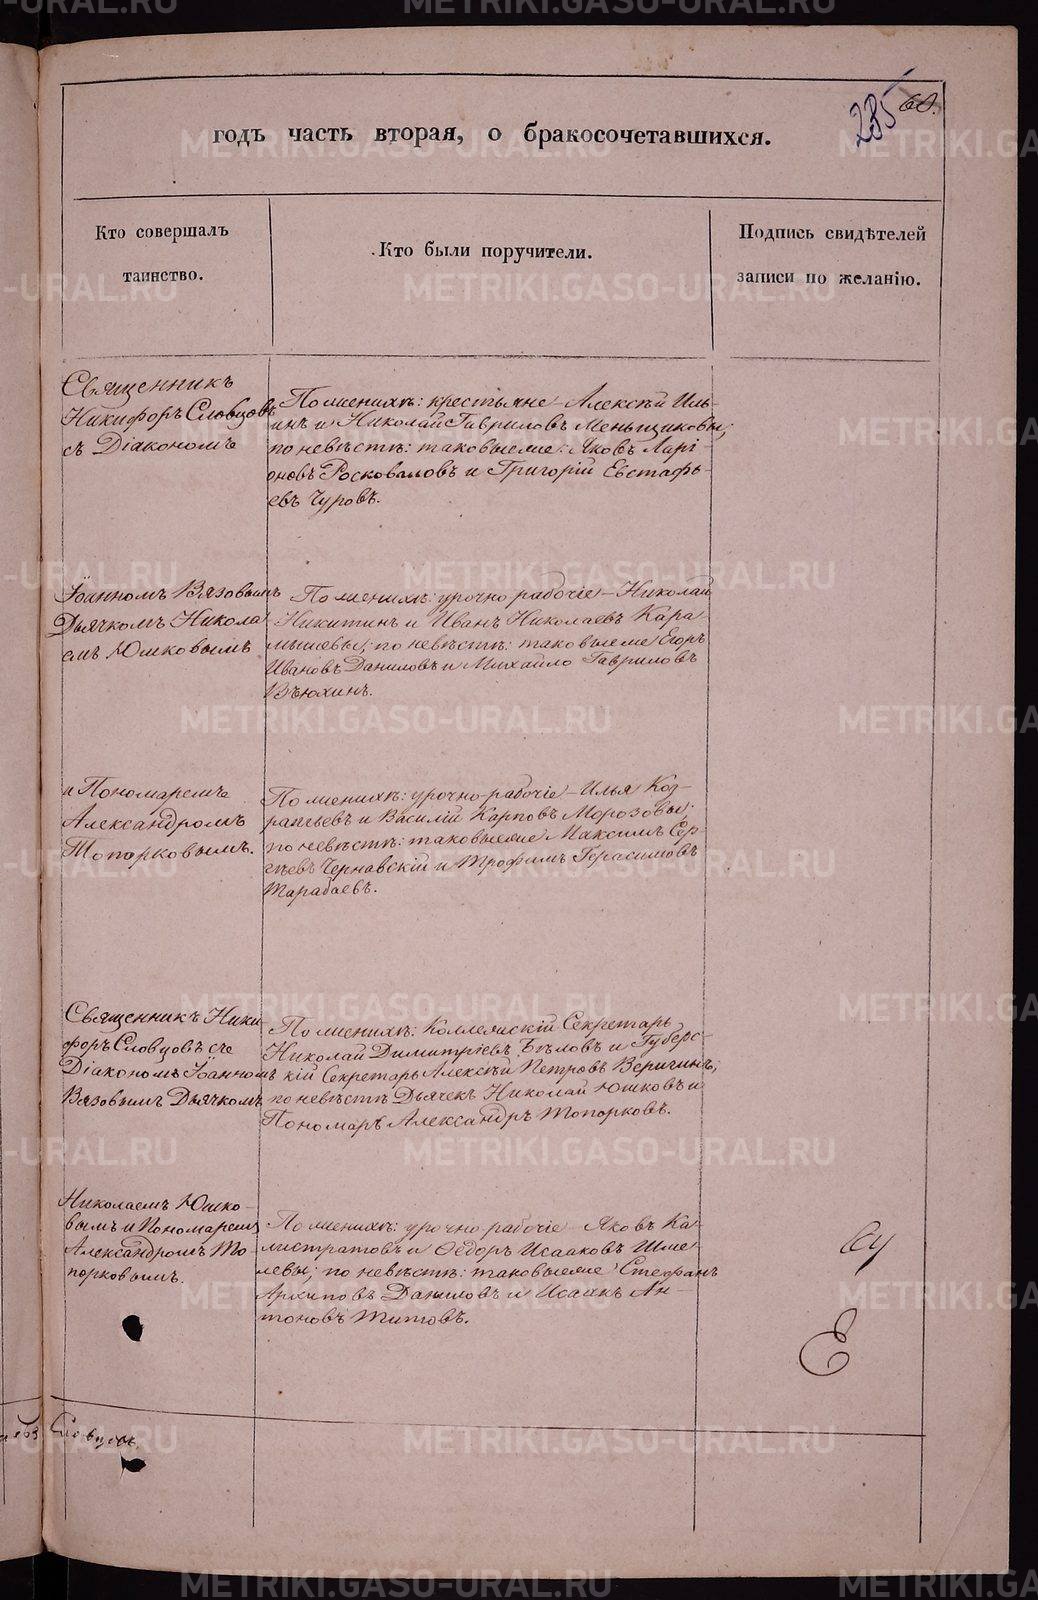 285 60.
годъ часть вторая, о бракосочетавшихся.
Кто совершалъ
таинство.
Кто были поручители.
Подпись свидѣтелей
записи по желанію.
Священникъ
Никифоръ Словцовъ
съ Діакономъ
По женихѣ: крестьяне – Алексѣй Иль-
инъ и Николай Гавриловъ Меньщиковы;
по невѣстѣ: таковыеже: Яковъ Лари-
оновъ Росковаловъ и Григорій Евстафь-
евъ Чуровъ.
Іоанномъ Вязовымъ
Дьячкомъ Никола-
емъ Юшковымъ
По женихѣ: урочно рабочіе – Николай
Никитинъ и Иванъ Николаевъ Кара-
мышевы; по невѣстѣ: таковыеже Егоръ
Ивановъ Даниловъ и Михайло Гавриловъ
Вьюхинъ.
и Пономаремъ
Александромъ
Топорковымъ.
По женихѣ: урочно-рабочіе – Илья Код-
ратьевъ и Василій Карповъ Морозовы;
по невѣстѣ: таковыеже Максимъ Сер-
гѣевъ Чернавскій и Трофимъ Герасимовъ
Тарабаевъ.
Священникъ Ники-
форъ Словцовъ съ
Діакономъ Іоанномъ
Вязовымъ Дьячкомъ
По женихѣ: Коллежскій Секретарь
Николай Димитріевъ Бѣловъ и Губерс-
кій Секретарь Алексѣй Петровъ Веригинъ;
по невѣстѣ Дьячекъ Николай Юшковъ и
Пономарь Александръ Топорковъ.
Николаемъ Юшко-
вымъ и Пономаремъ
Александромъ То-
порковымъ.
По женихѣ: урочно-рабочіе – Яковъ Ка-
листратовъ и Ѳедоръ Исааковъ Шме-
левы; по невѣстѣ: таковыеже Стефанъ
Архиповъ Даниловъ и Исаакъ Ан-
тоновъ Титовъ.
Словцовъ.
METRIKI.GASO-URAL.RU